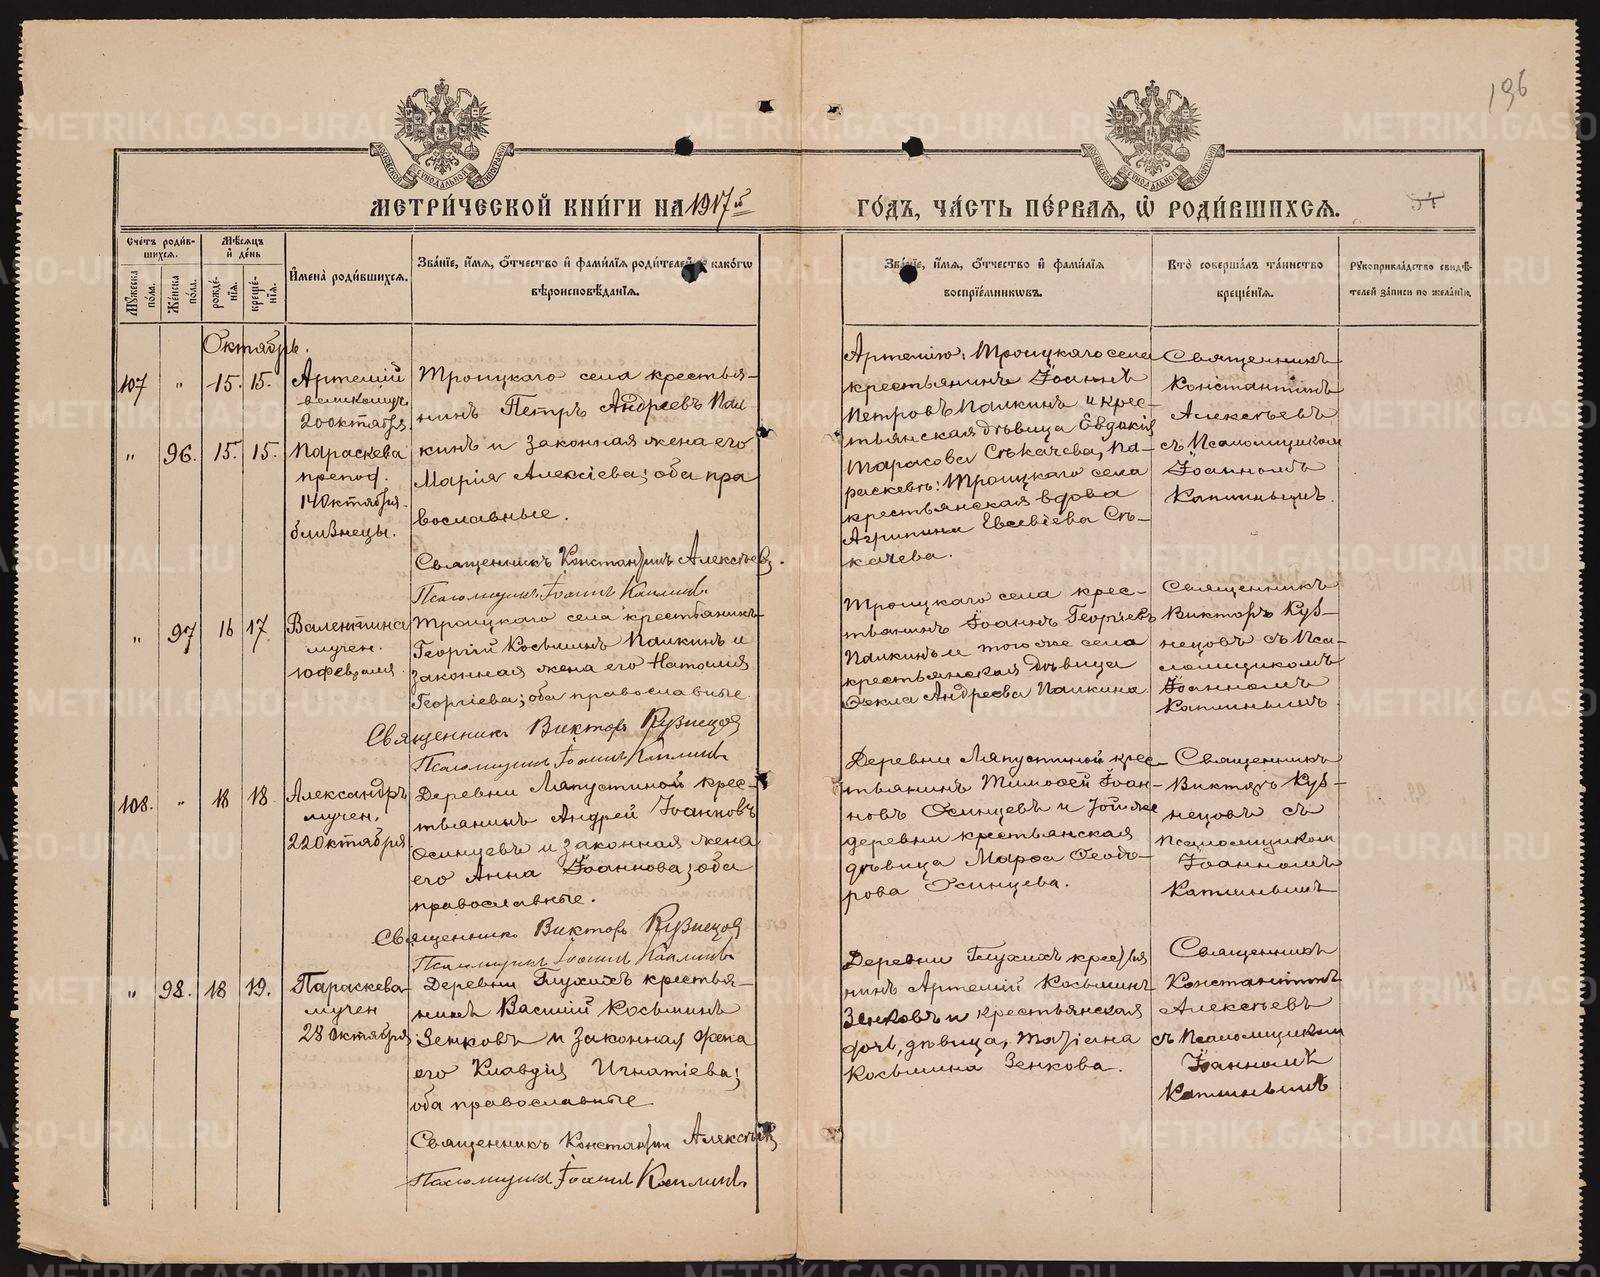 196
МОСКОВСКОЙ СѴНОДАЛЬНОЙ ТИПОГРАФІИ
МОСКОВСКОЙ СѴНОДАЛЬНОЙ ТИПОГРАФІИ
МЕТРИ́ЧЕСКОЙ КНИ́ГИ НА 1917й
ГО́ДЪ, ЧА́СТЬ ПЕ́РВАЯ, Ѡ҆ РОДИ́ВШИХСЯ.
Сче́тъ роди́в-
шихся.
Мꙋ́жеска по́ла.
Же́нска по́ла.
Мѣ́сяцъ и҆ де́нь
рожде́-нїя.
креще́-нїя.
И҆мена̀ роди́вшихся.
Зва́нїе, и҆́мя, ѻ҆́тчество и҆ фами́лїя роди́телей, и҆ како́гѡ
вѣроисповѣ́данїя.
Зва́нїе, и҆́мя, ѻ҆́тчество и҆ фами́лїя
воспрїе́мникѡвъ.
Кто̀ соверша́лъ та́инство
креще́нїя.
Рꙋкоприкла́дство свидѣ́-
телей за́писи по жела́нїю.
Октябрь.
107 " 15. 15.
Артемій
великомуч.
20 октября.
" 96. 15. 15.
Параскева
препод.
14 октября.
близнецы.
Троицкаго села крестья-
нинъ Петръ Андреевъ Пал
кинъ и законная жена его
Марія Алексіева; оба пра
вославные.
Священникъ Константинъ Алексѣевъ.
Псаломщикъ Іоаннъ Каплинъ.
Артемію: Троицкаго села
крестьянинъ Іоаннъ
Петровъ Палкинъ и крес-
тьянская дѣвица Евдокія
Тарасова Сѣкачева, Па-
раскевѣ: Троицкаго села
крестьянская вдова
Агрипина Евсевіева Сѣ-
качева.
Священникъ
Константинъ
Алексѣевъ
съ Псаломщиком
Іоанномъ
Каплинымъ.
" 97 16 17.
Валентина
мучен.
10 февраля.
Троицкаго села крестьянинъ
Георгій Косьминъ Палкинъ и
законная жена его Наталія
Георгіева; оба православные.
Священникъ Викторъ Кузнецовъ
Псаломщикъ Іоаннъ Каплинъ
Троицкаго села крес-
тьянинъ Іоаннъ Георгіевъ
Палкинъ и того же села
крестьянская дѣвица
Ѳекла Андреева Палкина
Священникъ
Викторъ Куз-
нецовъ съ Пса-
ломщикомъ
Іоанномъ
Каплинымъ.
108. " 18 18.
Александръ
мучен.
22 октября
Деревни Ляпустиной крес-
тьянинъ Андрей Іоанновъ
Осинцевъ и законная жена
его Анна Іоаннова; оба
православные.
Священникъ Викторъ Кузнецовъ
Псаломщикъ Іоаннъ Каплинъ
Деревни Ляпустиной крес-
тьянинъ Тимоѳей Іоан-
новъ Осинцевъ и той же
деревни крестьянская
дѣвица Марѳа Ѳеодо-
рова Осинцева.
Священникъ
Викторъ Куз-
нецовъ съ
Псаломщиком
Іоанномъ
Каплинымъ
" 98. 18 19.
Параскева
мучен
28 октября
Деревни Глухихъ крестья-
нинъ Василій Косьминъ
Зенковъ и законная жена
его Клавдія Игнатіева;
оба православные
Священникъ Константинъ Алексѣевъ
Псаломщикъ Іоаннъ Каплинъ.
Деревни Глухихъ крестья
нинъ Артемій Косьминъ
Зенковъ и крестьянская
дочь, дѣвица, Татіана
Косьмина Зенкова.
Священникъ
Константинъ
Алексѣевъ
съ Псаломщикомъ
Іоанномъ
Каплинымъ
METRIKI.GASO-URAL.RU